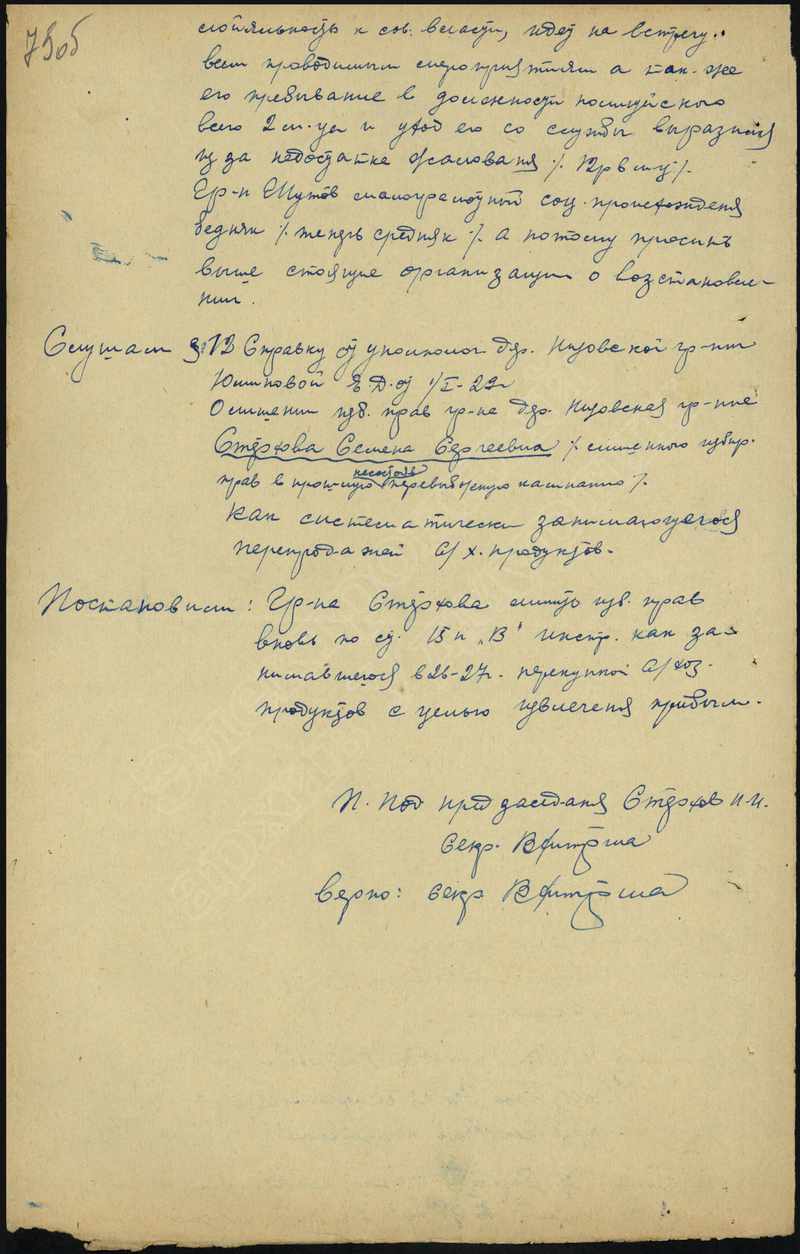 75об
слойяльность к сов. власти, идет на встречу.
всем проводимым мероприятиям а так-же
его пребывание в должности полицейского
всего 2 м-ца и уход его со службы выразился
из за недостатка жалования /. 12р в м-ц /.
Гр-н Шутов малограмотный соц. происхожденя
бедняк /. теперь средняк /. а потому просить
выше стоящие организации о возстановле-
нии.
Слушали § 13 Справку от уполномоч. дер. Низовской гр-ки
Юшковой Е.Д. от 1/I-29г
О лишении изб. прав гр-на дер. Низовская гр-на
Стерхова Семена Сергеевича /. лишенного избир.
прав в прошлую перевыборную кампанию /.
как систематически занимающегося
перепродажей с/х. продуктов.
Постановили: Гр-на Стерхова лишить изб. прав
вновь по ст. 15 п „В" инстр. как за-
нимавшегося в 26-27г. перекупкой с/хоз.
продуктов с целью извлеченя прибыли.
П. Под предзаседаня Стерхов И.И.
Секр.
Верно: секр